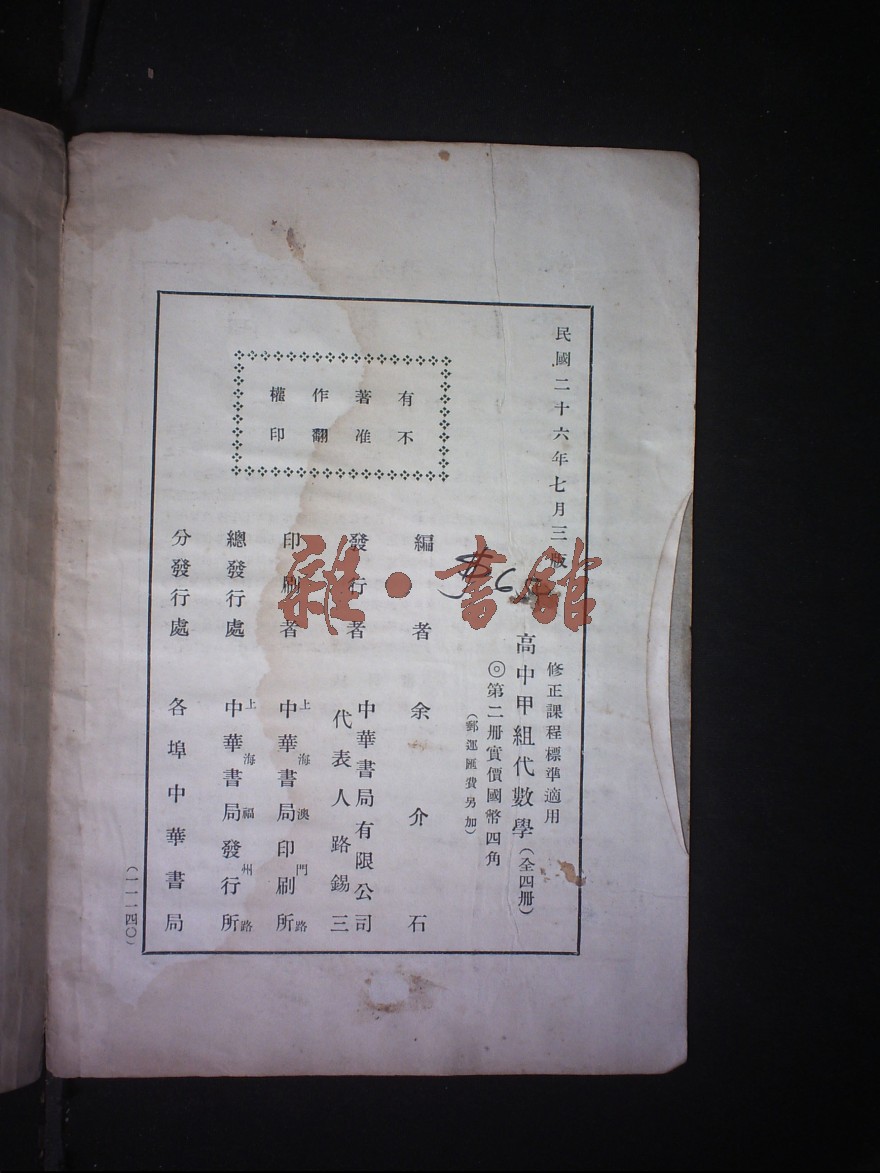 民國二十六年七月三版
修正課程標準適用
高中甲組代數學（全四冊）
◎第二冊實價國幣四角
（郵運匯費另加）
有著作權
不准翻印
編者 余介石
發行者 中華書局有限公司
代表人路錫三
印刷者 上海澳門路
中華書局印刷所
總發行處 上海福州路
中華書局發行所
分發行處 各埠中華書局
（一一一四〇）
雜·書館